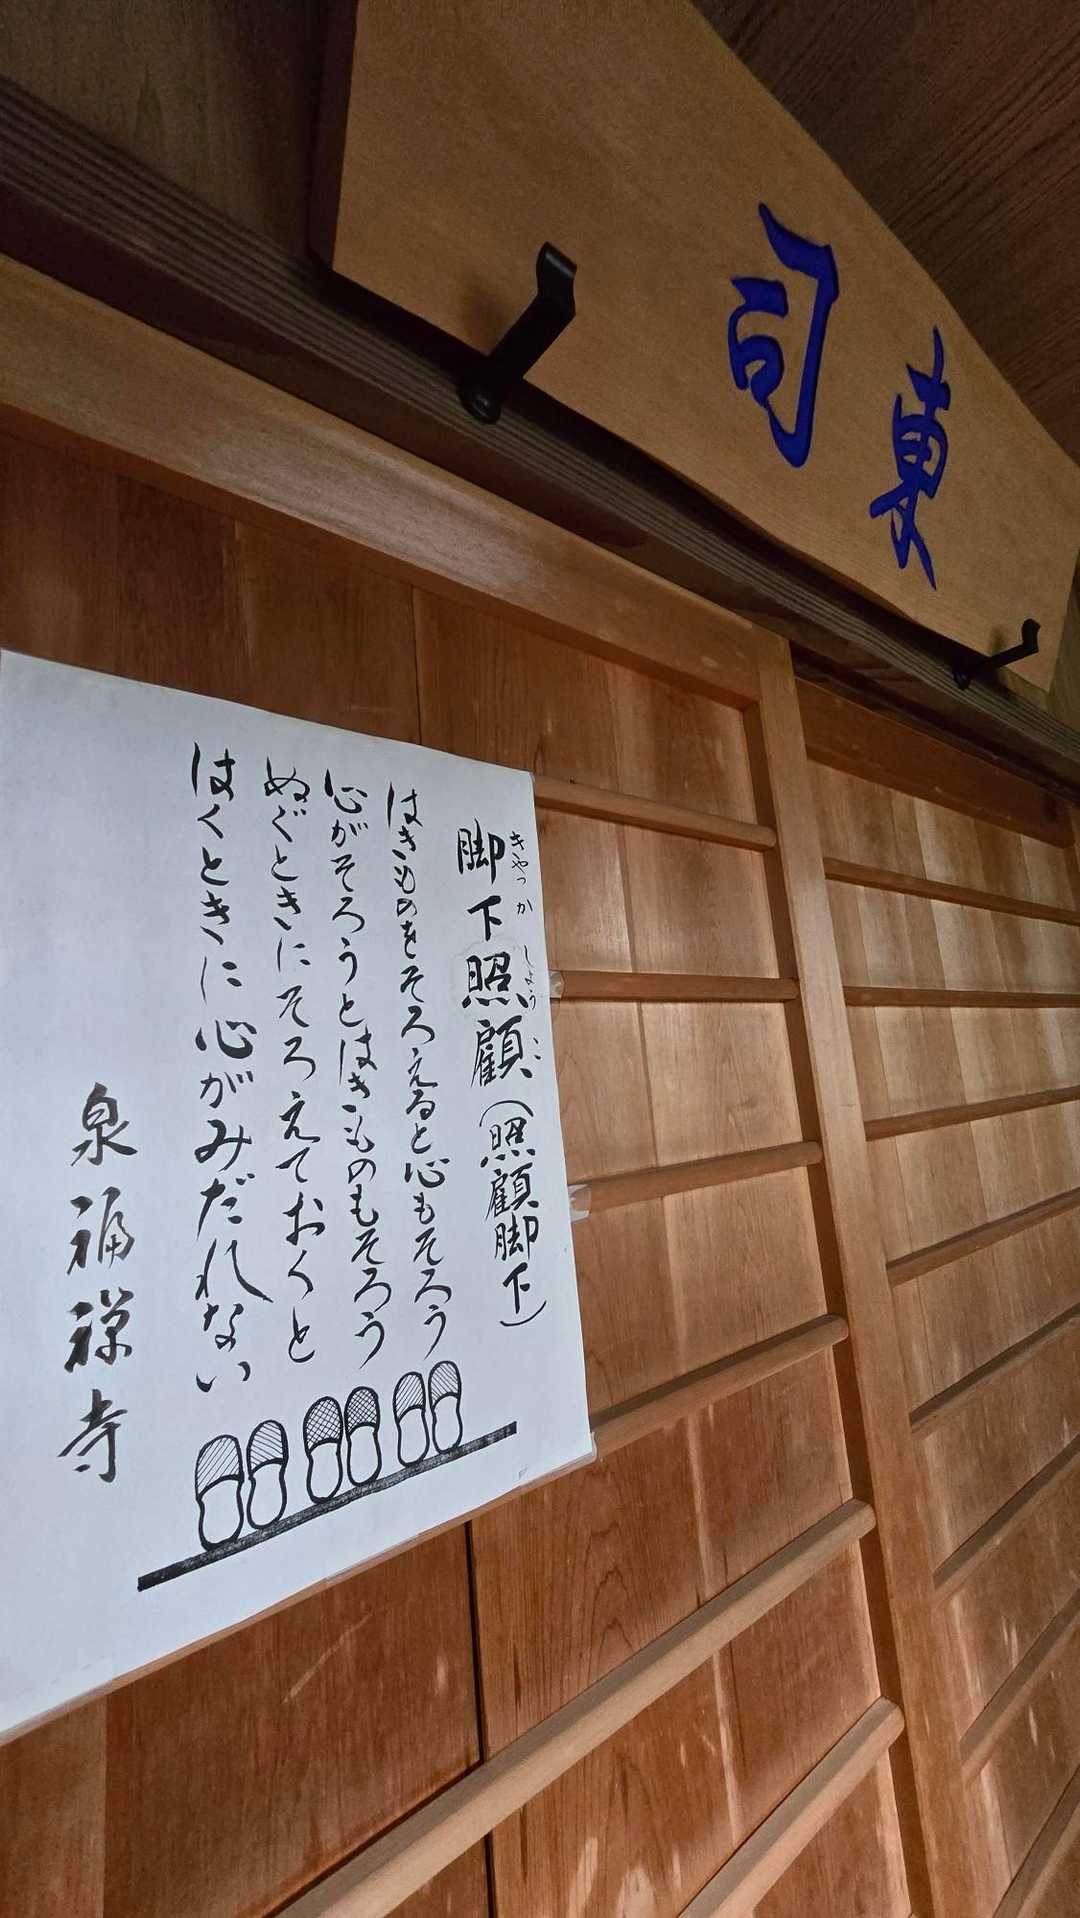 東司
脚下照顧(照顧脚下)
きゃっか しょうこ
はきものをそろえると心もそろう
心がそろうとはきものもそろう
ぬぐときにそろえておくと
はくときに心がみだれない
泉福禅寺